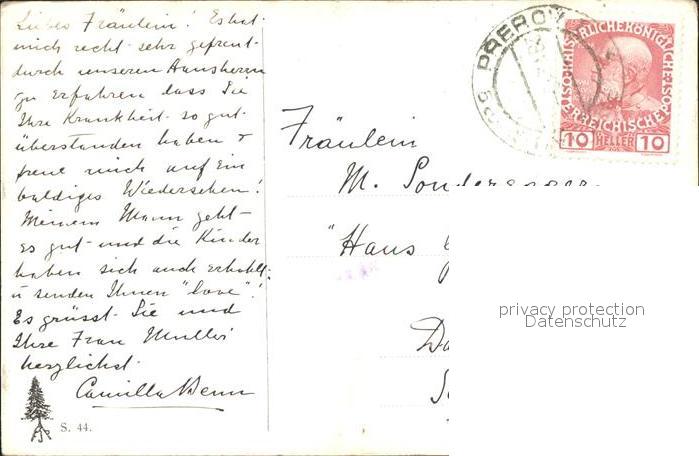 Liebes Fräulein! Es hat
mich recht sehr gefreut
durch unseren Hausherrn
zu erfahren dass Sie
Ihre Krankheit so gut
überstanden haben &
freue mich auf ein
baldiges Wiedersehen!
Meinem Mann geht
es gut und die Kinder
haben sich auch erholt
u senden Ihnen "love"!
Es grüsst Sie und
Ihre Frau Mutter
herzlichst
Camilla
S. 44.
PREROV
KAISERLICHE KÖNIGLICHE
ÖSTERREICHISCHE POST
10 HELLER 10
Fräulein
M.
"Haus
privacy protection
Datenschutz